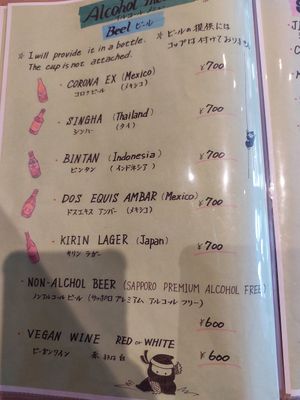 Alcohol Me
アルコール メニュー
Beel ビール
※ I will provide it in a bottle.
The cup is not attached.
※ ビールの提供には
コップは付けておりません
・CORONA EX (Mexico) ¥700
コロナビール (メキシコ)
・SINGHA (Thailand) ¥700
シンハー (タイ)
・BINTAN (Indonesia) ¥700
ビンタン (インドネシア)
・DOS EQUIS AMBAR (Mexico) ¥700
ドスエキス アンバー (メキシコ)
・KIRIN LAGER (Japan) ¥700
キリン ラガー
・NON-ALCHOL BEER (SAPPORO PREMIUM ALCOHOL FREE)
ノンアルコール ビール (サッポロ プレミアム アルコール フリー)
¥600
・VEGAN WINE RED or WHITE ¥600
ビーガンワイン 赤 または 白